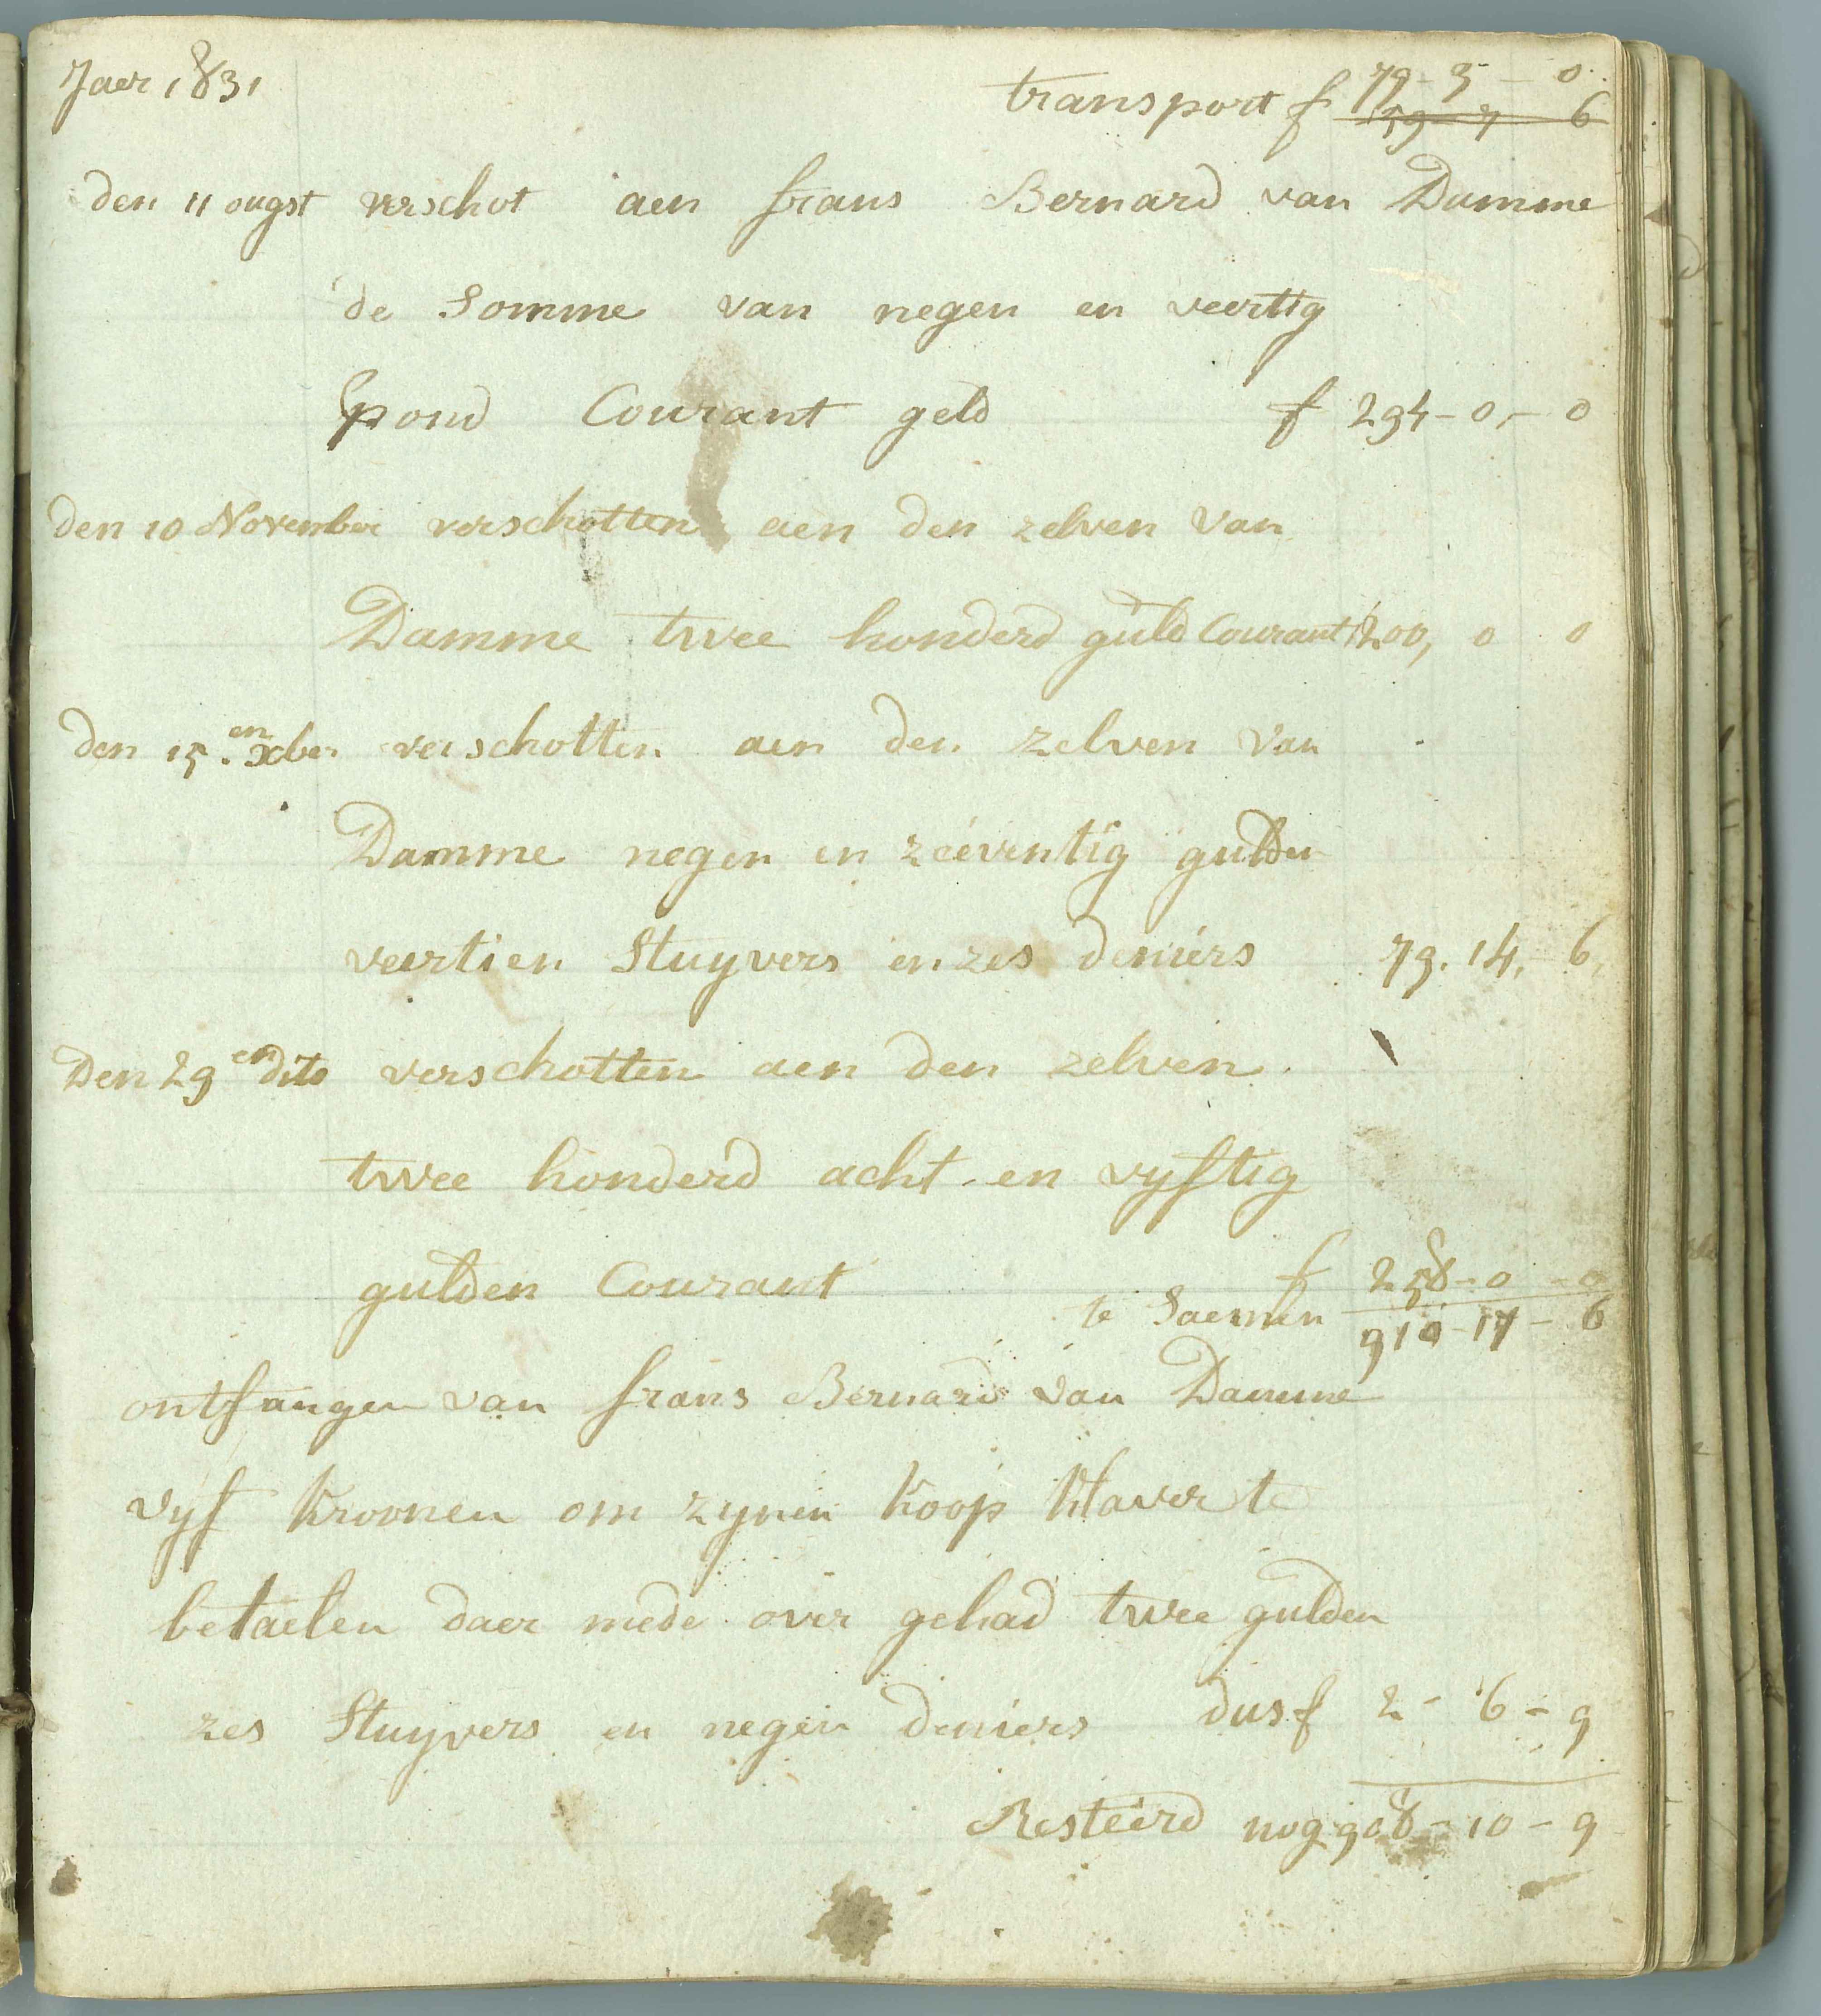 Jaer 1831 transport f 79 - 3 - 0
59 - 7 6
den 11 ougst verschot aen frans Bernard van Damme
de Somme van negen en veertig
pond Courant geld f 294 - 0 - 0
den 10 November verschotten aen den zelven Van
Damme twee honderd guld Courant f 200, 0 0
den 15.en xber verschotten aen den zelven Van
Damme negen en zeeventig gulden
veertien Stuyvers en zes deniers 79. 14, 6,
Den 29en dito verschotten aen den zelven.
twee honderd acht - en vyftig
gulden Courant f 258 - 0 - 0
te Saemen 910 - 17 - 6
ontfangen van frans Bernard Van Damme
vyf kroonen om zynen koop klaver te
betaelen daer mede over gehad twee gulden
zes Stuyvers en negen deniers dus f 2 - 6 - 9
Resteerd nog 908 - 10 - 9